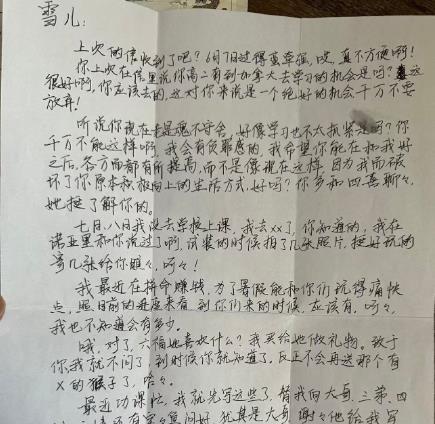 雪儿：
上次的信收到了吧？6月7日过得蛮牵强，哎，真不方便啊！
你上次在信里说你高二有到加拿大去学习的机会是吗？这
很好啊，你应该去的，这对你来说是一个绝好的机会千万不要
放弃！
听说你现在老是魂不守舍，好像学习也不太抓紧是吗？你
千万不能这样啊，我会有负罪感的，我希望你能在和我好
之后，各方面都有所提高，而不是像现在这样，因为我而破
坏了你原本积极向上的生活方式，好吗？你多和四喜聊々，
她挺了解你的。
七月、八日我没去学校上课，我去xx了，你知道的，我在
诺亚里和你说过了啊，试装的时候拍了几张照片，挺好玩的
寄几张给你瞧々，呵々！
我最近在拼命赚钱，为了暑假能和你们玩得痛快
点，照目前的进度来看，到你们来的时候，应该有，呵々，
我也不知道会有多少。
哦，对了，六福她喜欢什么？我买给她做礼物。致于
你我就不问了，到时候你就知道了，反正不会再送那个有
X的猴子了，哈々。
最近功课忙，我就先写这些了，替我向大哥、三弟、四
问好，尤其是大哥，谢々他给我写